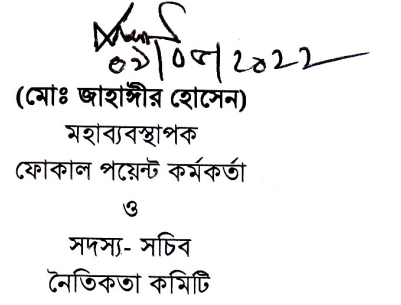 ০২/০৫/2022
(মোঃ জাহাঙ্গীর হোসেন)
মহাব্যবস্থাপক
ফোকাল পয়েন্ট কর্মকর্তা
ও
সদস্য- সচিব
নৈতিকতা কমিটি